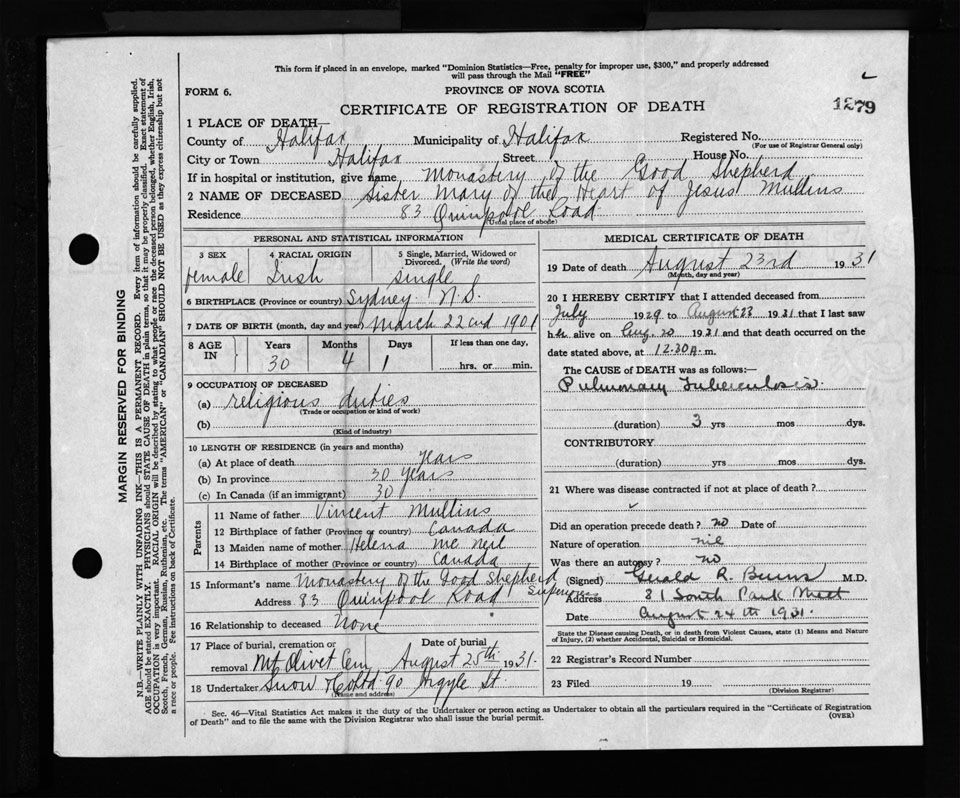 This form if placed in an envelope, marked "Dominion Statistics—Free, penalty for improper use, $300," and properly addressed
will pass through the Mail "FREE"
FORM 6.
PROVINCE OF NOVA SCOTIA
CERTIFICATE OF REGISTRATION OF DEATH
1279
1 PLACE OF DEATH—
County of Halifax Municipality of Halifax Registered No.
(For use of Registrar General only)
City or Town Halifax Street House No.
If in hospital or institution, give name Monastery of the Good Shepherd
2 NAME OF DECEASED Sister Mary of the Heart of Jesus Mullins
Residence 83 Quinpool Road
(Usual place of abode)
PERSONAL AND STATISTICAL INFORMATION
3 SEX 4 RACIAL ORIGIN 5 Single, Married, Widowed or
Divorced. (Write the word)
female Irish single
6 BIRTHPLACE (Province or country) Sydney N.S.
7 DATE OF BIRTH (month, day and year) March 22nd 1901
8 AGE IN Years Months Days If less than one day,
30 4 1 hrs. or min.
9 OCCUPATION OF DECEASED
(a) religious duties
(Trade or occupation or kind of work)
(b)
(Kind of industry)
10 LENGTH OF RESIDENCE (in years and months)
(a) At place of death years
(b) In province 30 years
(c) In Canada (if an immigrant) 30
Parents
11 Name of father Vincent Mullins
12 Birthplace of father (Province or country) Canada
13 Maiden name of mother Helena McNeil
14 Birthplace of mother (Province or country) Canada
15 Informant's name Monastery of the Good Shepherd
Address 83 Quinpool Road
16 Relationship to deceased None
17 Place of burial, cremation or Date of burial
removal Mt Olivet Cem August 25th 1931.
18 Undertaker Snow & Co Ltd 90 Argyle St.
(Name and address)
MEDICAL CERTIFICATE OF DEATH
19 Date of death August 23rd 1931
(Month, day and year)
20 I HEREBY CERTIFY that I attended deceased from
July 1929 to August 23 1931 that I last saw
her alive on Aug. 20 1931 and that death occurred on the
date stated above, at 12.30 A. m.
The CAUSE of DEATH was as follows:—
Pulmonary Tuberculosis.
(duration) 3 yrs mos dys.
CONTRIBUTORY
(duration) yrs mos dys.
21 Where was disease contracted if not at place of death?
Did an operation precede death? no Date of
Nature of operation nil
Was there an autopsy? no
(Signed) Gerald R. Burns M.D.
Address 81 South Park Street
Date August 24th 1931.
State the Disease causing Death, or in death from Violent Causes, state (1) Means and Nature
of Injury, (2) whether Accidental, Suicidal or Homicidal.
22 Registrar's Record Number
23 Filed 19
(Division Registrar)
Sec. 46—Vital Statistics Act makes it the duty of the Undertaker or person acting as Undertaker to obtain all the particulars required in the "Certificate of Registration
of Death" and to file the same with the Division Registrar who shall issue the burial permit.
(OVER)
MARGIN RESERVED FOR BINDING
N.B.—WRITE PLAINLY WITH UNFADING INK—THIS IS A PERMANENT RECORD. Every item of information should be carefully supplied.
AGE should be stated EXACTLY. PHYSICIANS should STATE CAUSE OF DEATH in plain terms, so that it may be properly classified. Exact statement of
OCCUPATION is very important. RACIAL ORIGIN will be described by stating to what people or race the deceased person belonged, whether English, Irish,
Scotch, French, German, Russian, Ruthenian, etc. The terms "AMERICAN" or "CANADIAN" SHOULD NOT BE USED as they express citizenship but not
a race or people. See instructions on back of Certificate.